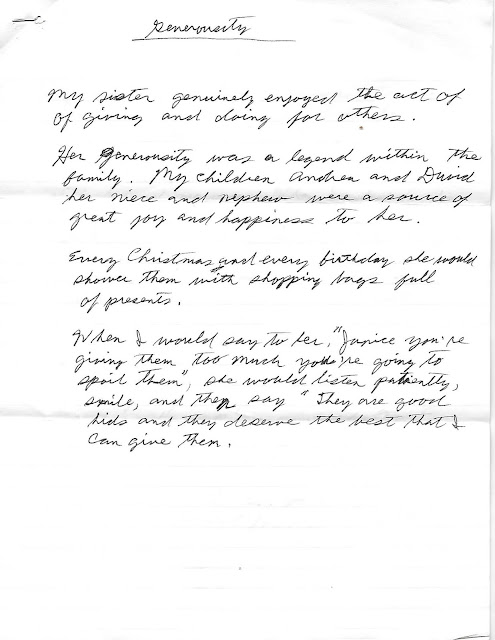 Generousity
My sister genuinely enjoyed the act of
of giving and doing for others.
Her Generousity was a legend within the
family. My children Andrea and David
her niece and nephew were a source of
great joy and happiness to her.
Every Christmas and every birthday she would
shower them with shopping bags full
of presents.
When I would say to her, "Janice you're
giving them too much you're going to
spoil them", she would listen patiently,
smile, and then say "They are good
kids and they deserve the best that I
can give them.